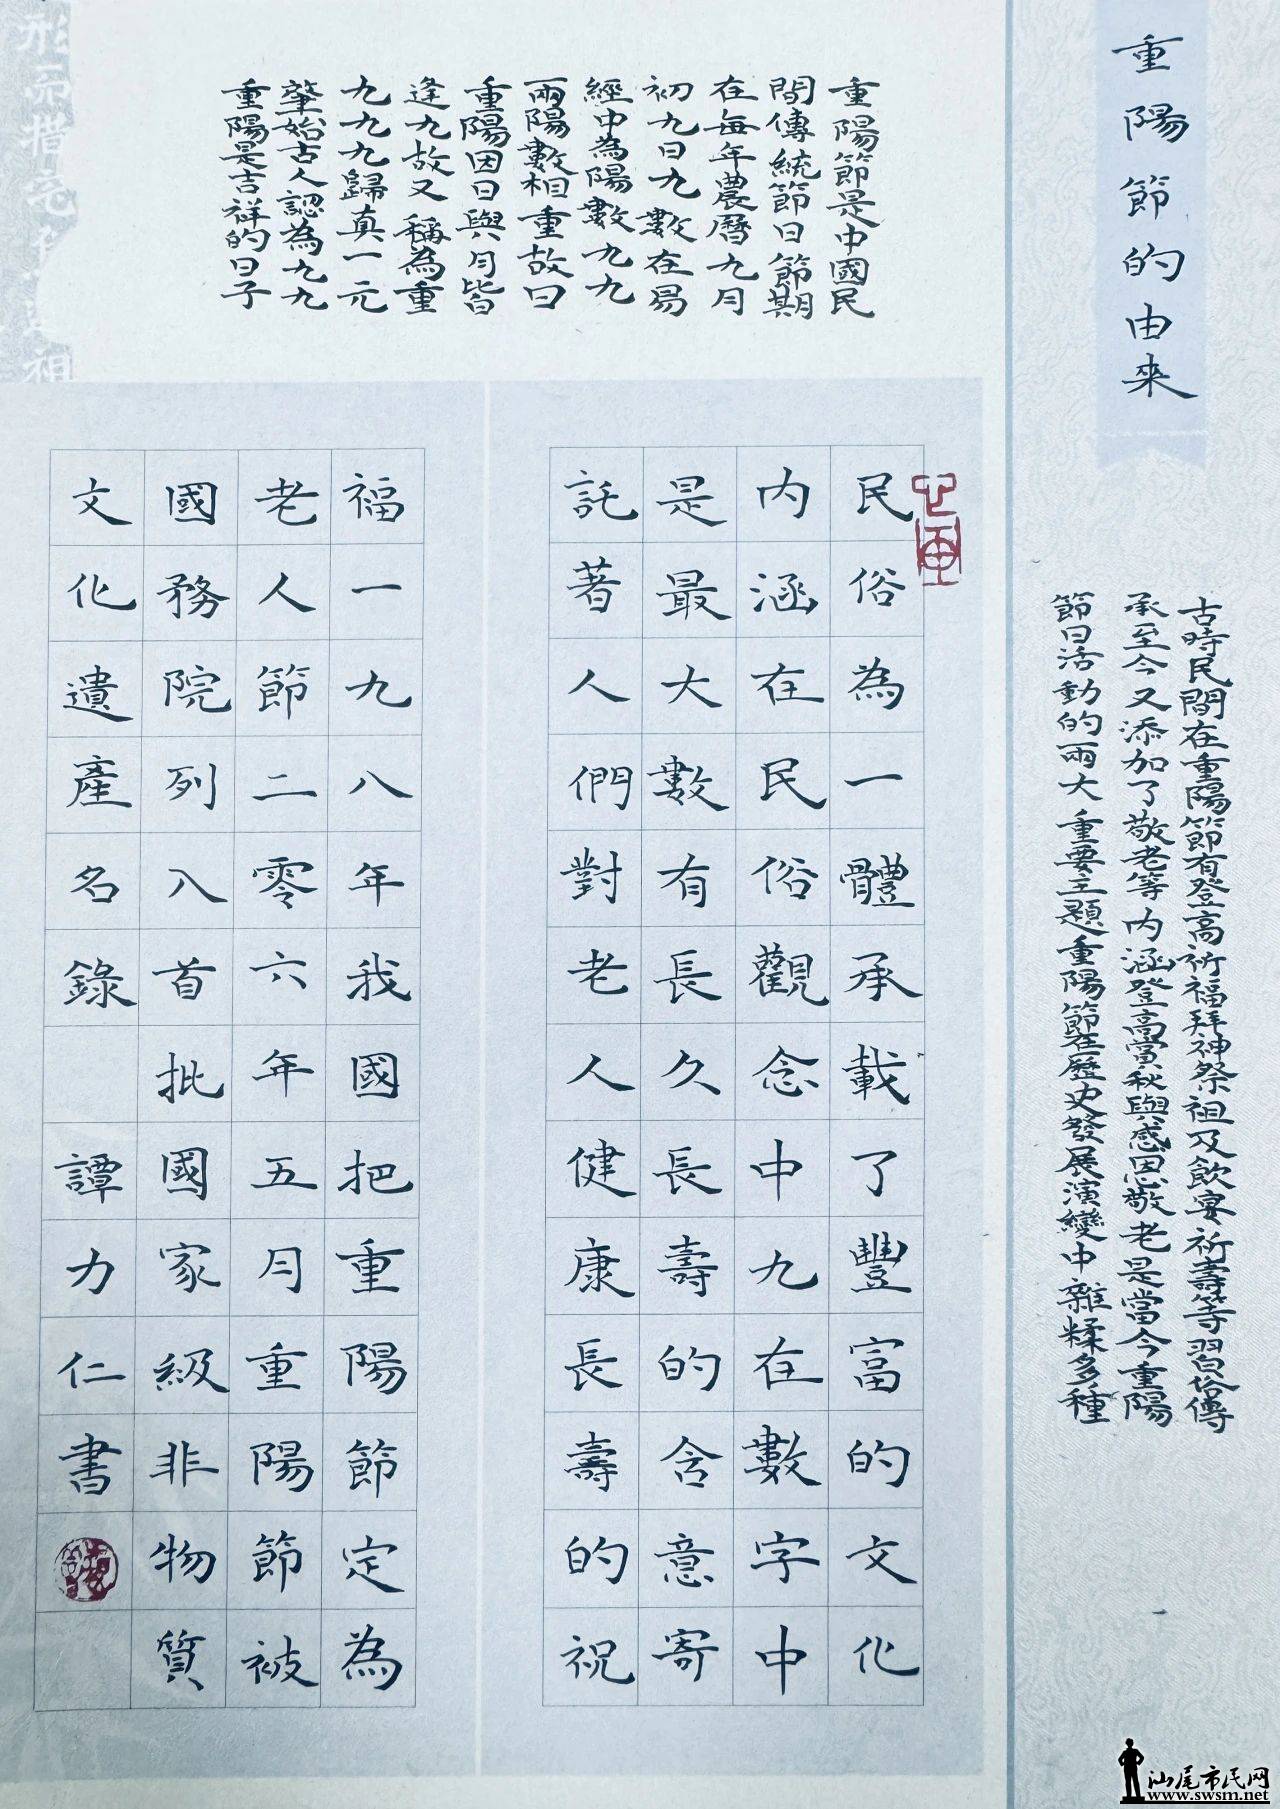 重陽節的由來
重陽節是中國民
間傳統節日節期
在每年農曆九月
初九日九數在易
經中為陽數九九
兩陽數相重故曰
重陽因日與月皆
逢九故又稱為重
九九九歸真一元
肇始古人認為九九
重陽是吉祥的日子
古時民間在重陽節有登高祈福拜神祭祖及飲宴祈壽等習俗傳
承至今又添加了敬老等內涵登高賞秋與感恩敬老是當今重陽
節日活動的兩大重要主題重陽節在歷史發展演變中雜糅多種
民俗為一體承載了豐富的文化
內涵在民俗觀念中九在數字中
是最大數有長久長壽的含意寄
託著人們對老人健康長壽的祝
福一九八年我國把重陽節定為
老人節二零六年五月重陽節被
國務院列入首批國家級非物質
文化遺產名錄 譚力仁書
汕尾市民网
www.swsm.net